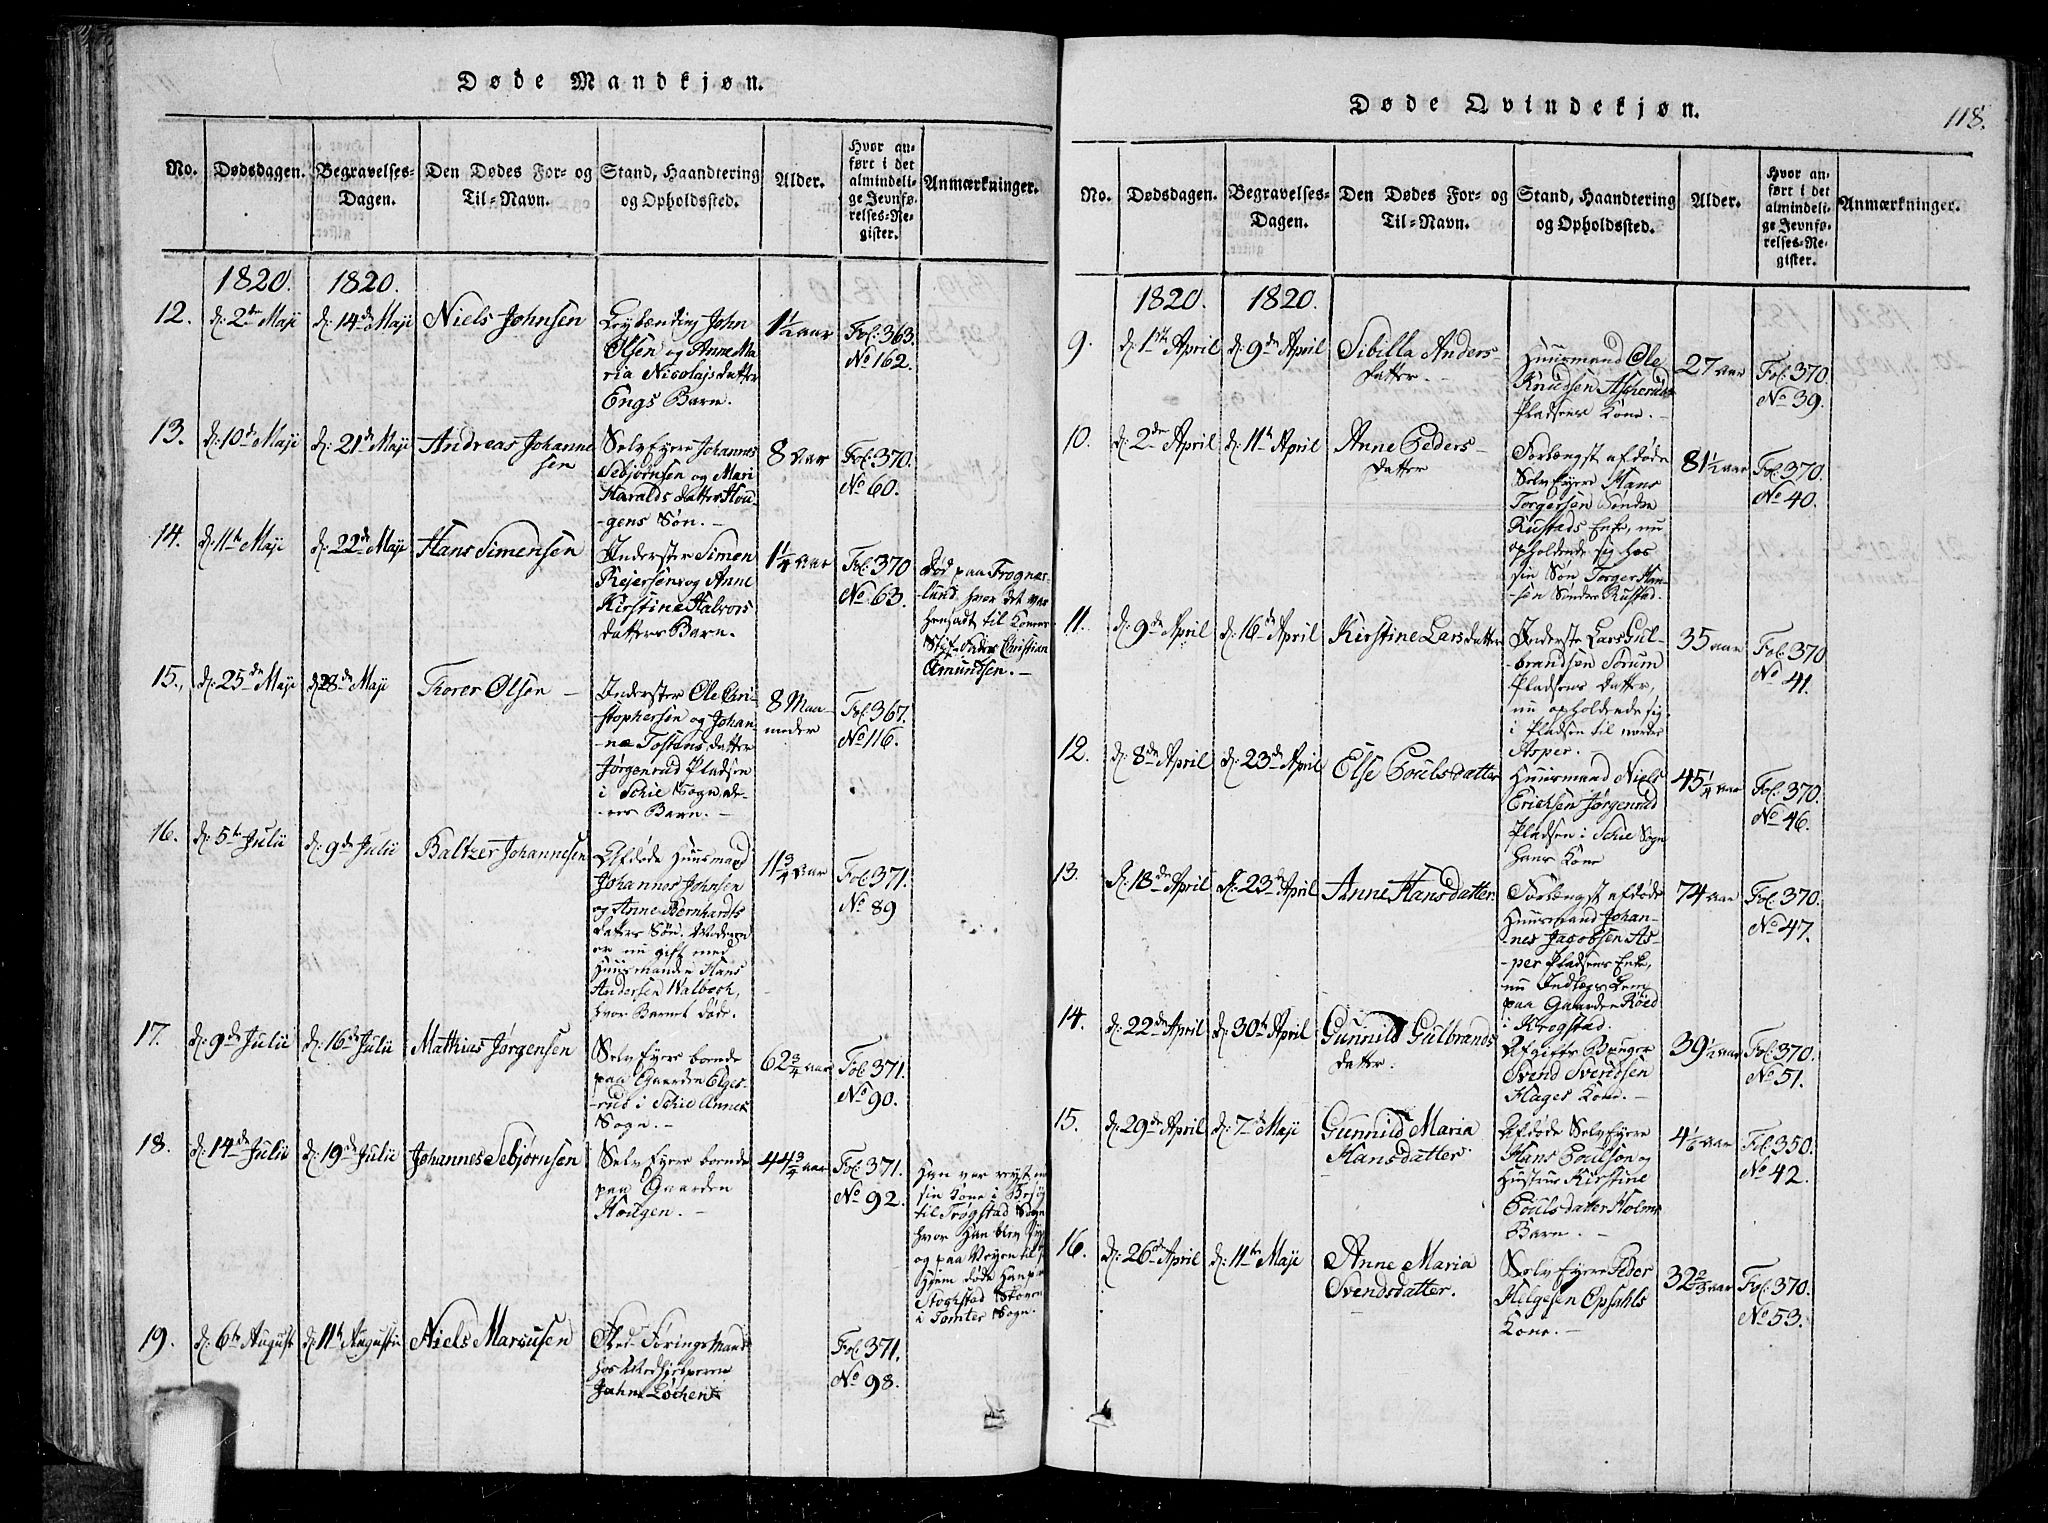 Døde Mandkjøn.
No.
Dødsdagen.
Begravelses-
Dagen.
Den Dødes For- og
Til-Navn.
Stand, Haandtering
og Opholdssted.
Alder.
Hvor an-
ført i det
almindeli-
ge Jevnfø-
relses-Re-
gister.
Anmærkninger.
1820. 1820.
12. d: 2den Maji d: 14de Maji Niels Johnsen
John
Olsen og Anne Ma
ria Nicolajsdatter
Engs Barn.
1½ aar
Fol: 363.
No 162.
13. d: 10de Maji d: 21de Maji Andreas Johanne
sen
Selv Eyere Johannes
Sebjørnsen og Mari
Haralds datter Hou
-gens Søn. -
8 aar
Fol: 370.
No 60.
14. d: 11te Maji d: 22de Maji Hans Simensen
Inderster Simen
Rejersen og Anne
Kirstine Halvors
datters Barn.
1¼ aar
Fol: 370
No 63.
Død paa Frogner-
lund, hvor det var
hensadt til Konens
Stif-Fader Christian
Amundsen. -
15. d: 25de Maji d: 28de Maji Thorer Olsen -
Inderster Ole Chri-
-stophersen og Johan
-ne Tostens datter
Jørgenrud Pladsen
i Schie Sogn, de-
res Barn. -
8 Maa-
neder
Fol: 367.
No 116.
16. d: 5te Julii d: 9de Julii Baltzer Johannesen
Afdøde Huusmand
Johannes Johnsen
og Anne Bernhardts
datters Søn. Moderen
er nu gift med
Huusmanden Hans
Andersen Walbech,
hvor Barnet døde.
11¾ aar
Fol: 371.
No 89
17. d: 9de Julii d: 16de Julii Mathias Jørgensen
Selv Eyere boende
paa Gaarden Elges-
-rud i Schie Annex
Sogn. -
62¾ aar
Fol: 371.
No 90.
18. d: 14de Julii d: 19de Julii Johannes Sebjørnsen
Selv Eyere boende
paa Gaarden
Hougen. -
44¾ aar
Fol: 371.
No 92.
Han var reyst med
sin Kone i Besøg
til Trøgstad Sogn
hvor Han blev syg
og paa Veyen til
Hjem døde Han paa
Stochstad Skoven
i Tomter Sogn.
19. d: 6te August d: 11te Augusti Niels Marcusen
hos Medhjelperen
John Løchen
Fol: 371.
No 98.
Døde Qvindekjøn.
118.
No.
Dødsdagen.
Begravelses-
Dagen.
Den Dødes For- og
Til-Navn.
Stand, Haandtering
og Opholdssted.
Alder.
Hvor an-
ført i det
almindeli-
ge Jevnfø-
relses-Re-
gister.
Anmærkninger.
1820. 1820.
9. d: 1ste April d: 9de April Sibilla Anders-
datter. -
Huusmand Ole
Knudsen Ascherud
Pladsens Kone. -
27 aar
Fol: 370.
No 39.
10. d: 2den April d: 11te April Anne Peders-
datter
Forlængst afdøde
Selv Eyere Hans
Torgersen Søndre
Rustads Enke, nu
opholdende sig hos
sin Søn Torger Han-
sen Søndre Rustad.
81½ aar
Fol: 370.
No 40.
11. d: 9de April d: 16de April Kirstine Larsdatter
Inderste Lars Gul-
brandsen Sorum
Pladsens datter,
nu opholdende sig
i Pladsen til norder
Asper. -
35 aar
Fol: 370
No 41.
12. d: 8de April d: 23de April Else Poulsdatter
Huusmand Niels
Erichsen Jørgenrud
Pladsen i Schie Sogn
hans Kone
45¼ aar
Fol: 370.
No 46.
13. d: 18de April d: 23de April Anne Hansdatter.
Forlængst afdøde
Huusmand Johan-
-nes Jacobsen As-
-per Pladsens Enke,
nu Indlægs Lem
paa Gaarden Røed
i Krogstad.
74 aar
Fol: 370.
No 47.
14. d: 22de April d: 30te April Gunnild Gulbrands
datter.
Afgifts Bruger
Svend Svendsen
Hages Kone. -
39½ aar
Fol: 370.
No 51.
15. d: 29de April d: 7de Maji Gunnild Maria
Hansdatter.
Afdøde Selv Eyere
Hans Poulsen og
Hustrue Kirstine
Poulsdatter Holms
Barn. -
4 1/6 aar
Fol: 350.
No 42.
16. d: 26de April d: 11te Maji Anne Maria
Svendsdatter.
Selv Eyere Peder
Helgesen Opsahls
Kone. -
32⅔ aar
Fol: 370.
No 53.